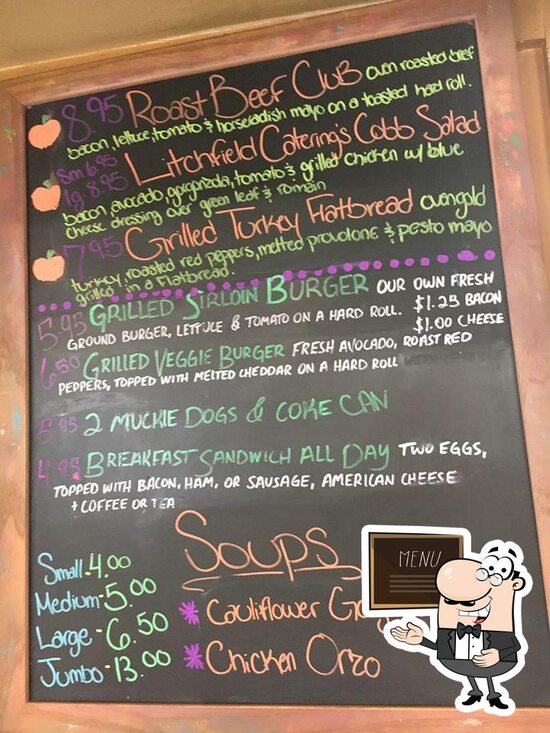 8.95 Roast Beef Club oven roasted beef
bacon, lettuce, tomato & horseradish mayo on a toasted hard roll.
Sm 6.95 Litchfield Catering's Cobb Salad
lg 8.95
bacon, avocado, gorgonzola, tomato & grilled chicken w/ blue
cheese dressing over green leaf & romain
7.95 Grilled Turkey Flatbread ovengold
turkey, roasted red peppers, melted provolone & pesto mayo
grilled in a Flatbread.
5.95 GRILLED SIRLOIN BURGER OUR OWN FRESH
GROUND BURGER, LETTUCE & TOMATO ON A HARD ROLL. $1.25 BACON
$1.00 CHEESE
6.50 GRILLED VEGGIE BURGER FRESH AVOCADO, ROAST RED
PEPPERS, TOPPED WITH MELTED CHEDDAR ON A HARD ROLL
5.95 2 MUCKIE DOGS & COKE CAN
4.95 BREAKFAST SANDWICH ALL DAY TWO EGGS,
TOPPED WITH BACON, HAM, OR SAUSAGE, AMERICAN CHEESE
+ COFFEE OR TEA
Soups
Small-4.00
Medium-5.00
Large-6.50
Jumbo-13.00
* Cauliflower
* Chicken Orzo
MENU